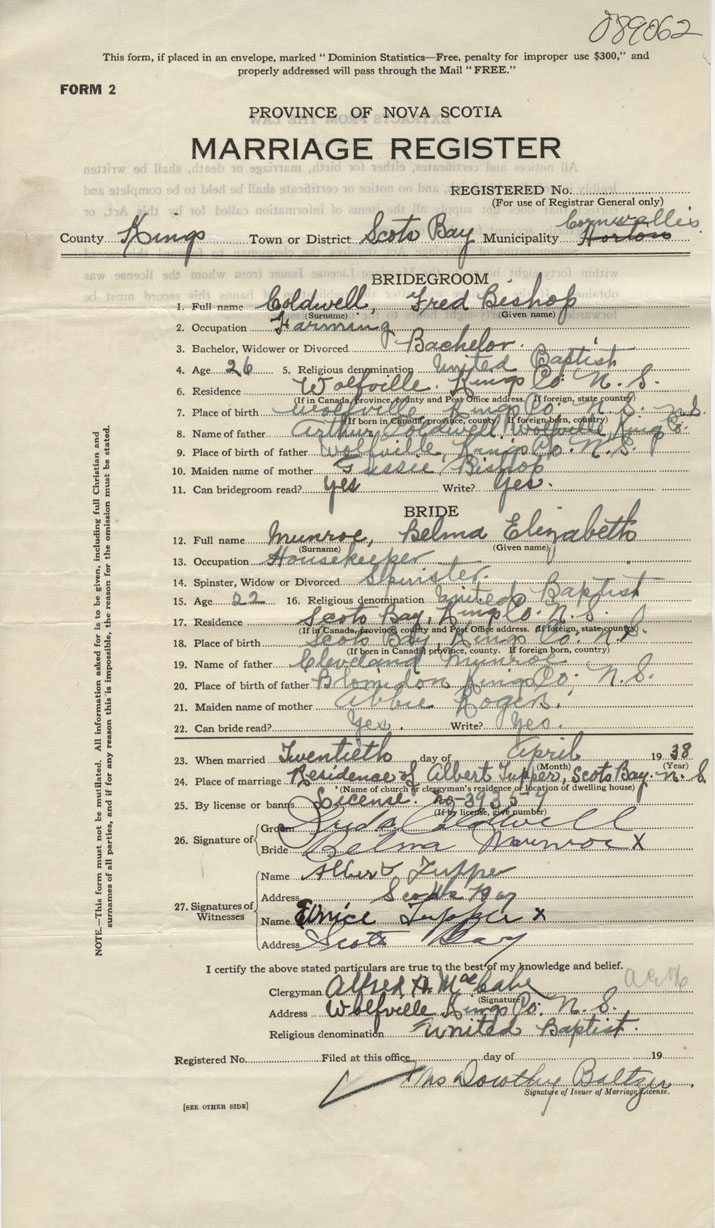 089062
This form, if placed in an envelope, marked "Dominion Statistics—Free, penalty for improper use $300," and
properly addressed will pass through the Mail "FREE."
FORM 2
PROVINCE OF NOVA SCOTIA
MARRIAGE REGISTER
REGISTERED No.
(For use of Registrar General only)
Cornwallis
County Kings Town or District Scots Bay Municipality Horton
BRIDEGROOM
1. Full name Coldwell, Fred Bishop
(Surname) (Given name)
2. Occupation Farming
3. Bachelor, Widower or Divorced Bachelor.
4. Age 26 5. Religious denomination United Baptist
6. Residence Wolfville. Kings Co. N. S.
(If in Canada, province, county and Post Office address. If foreign, state country)
7. Place of birth Wolfville Kings Co. N. S.
(If born in Canada, province, county. If foreign born, country)
8. Name of father Arthur Coldwell, Wolfville Kings Co. N.S.
9. Place of birth of father Wolfville, Kings Co. N. S.
10. Maiden name of mother Gussie Bishop
11. Can bridegroom read? Yes Write? Yes.
BRIDE
12. Full name Munroe, Belma Elizabeth
(Surname) (Given name)
13. Occupation Housekeeper
14. Spinster, Widow or Divorced Spinster.
15. Age 22 16. Religious denomination United Baptist
17. Residence Scots Bay, Kings Co. N. S.
(If in Canada, province, county and Post Office address. If foreign, state country)
18. Place of birth Scots Bay Kings Co. N. S.
(If born in Canada, province, county. If foreign born, country)
19. Name of father Cleveland Munroe
20. Place of birth of father Blomidon Kings Co. N. S.
21. Maiden name of mother Abbie Rogers.
22. Can bride read? Yes. Write? Yes.
23. When married Twentieth day of April 1938
(Month) (Year)
24. Place of marriage Residence of Albert Tupper, Scots Bay. N. S
(Name of church or clergyman's residence or location of dwelling house)
25. By license or banns License. no
(If by license, give number)
26. Signature of
Groom Coldwell
Bride Belma Munroe X
27. Signatures of Witnesses
Name Albert Tupper
Address Scotts Bay
Name Eunice Tupper x
Address Scots Bay
I certify the above stated particulars are true to the best of my knowledge and belief.
Clergyman Alfred A. MacCabe
(Signature)
Address Wolfville Kings Co. N. S.
Religious denomination United Baptist.
Registered No. Filed at this office day of 19
Mrs Dorothy Baltzer
Signature of Issuer of Marriage License.
[SEE OTHER SIDE]
NOTE.—This form must not be mutilated. All information asked for is to be given, including full Christian and
surnames of all parties, and if for any reason this is impossible, the reason for the omission must be stated.